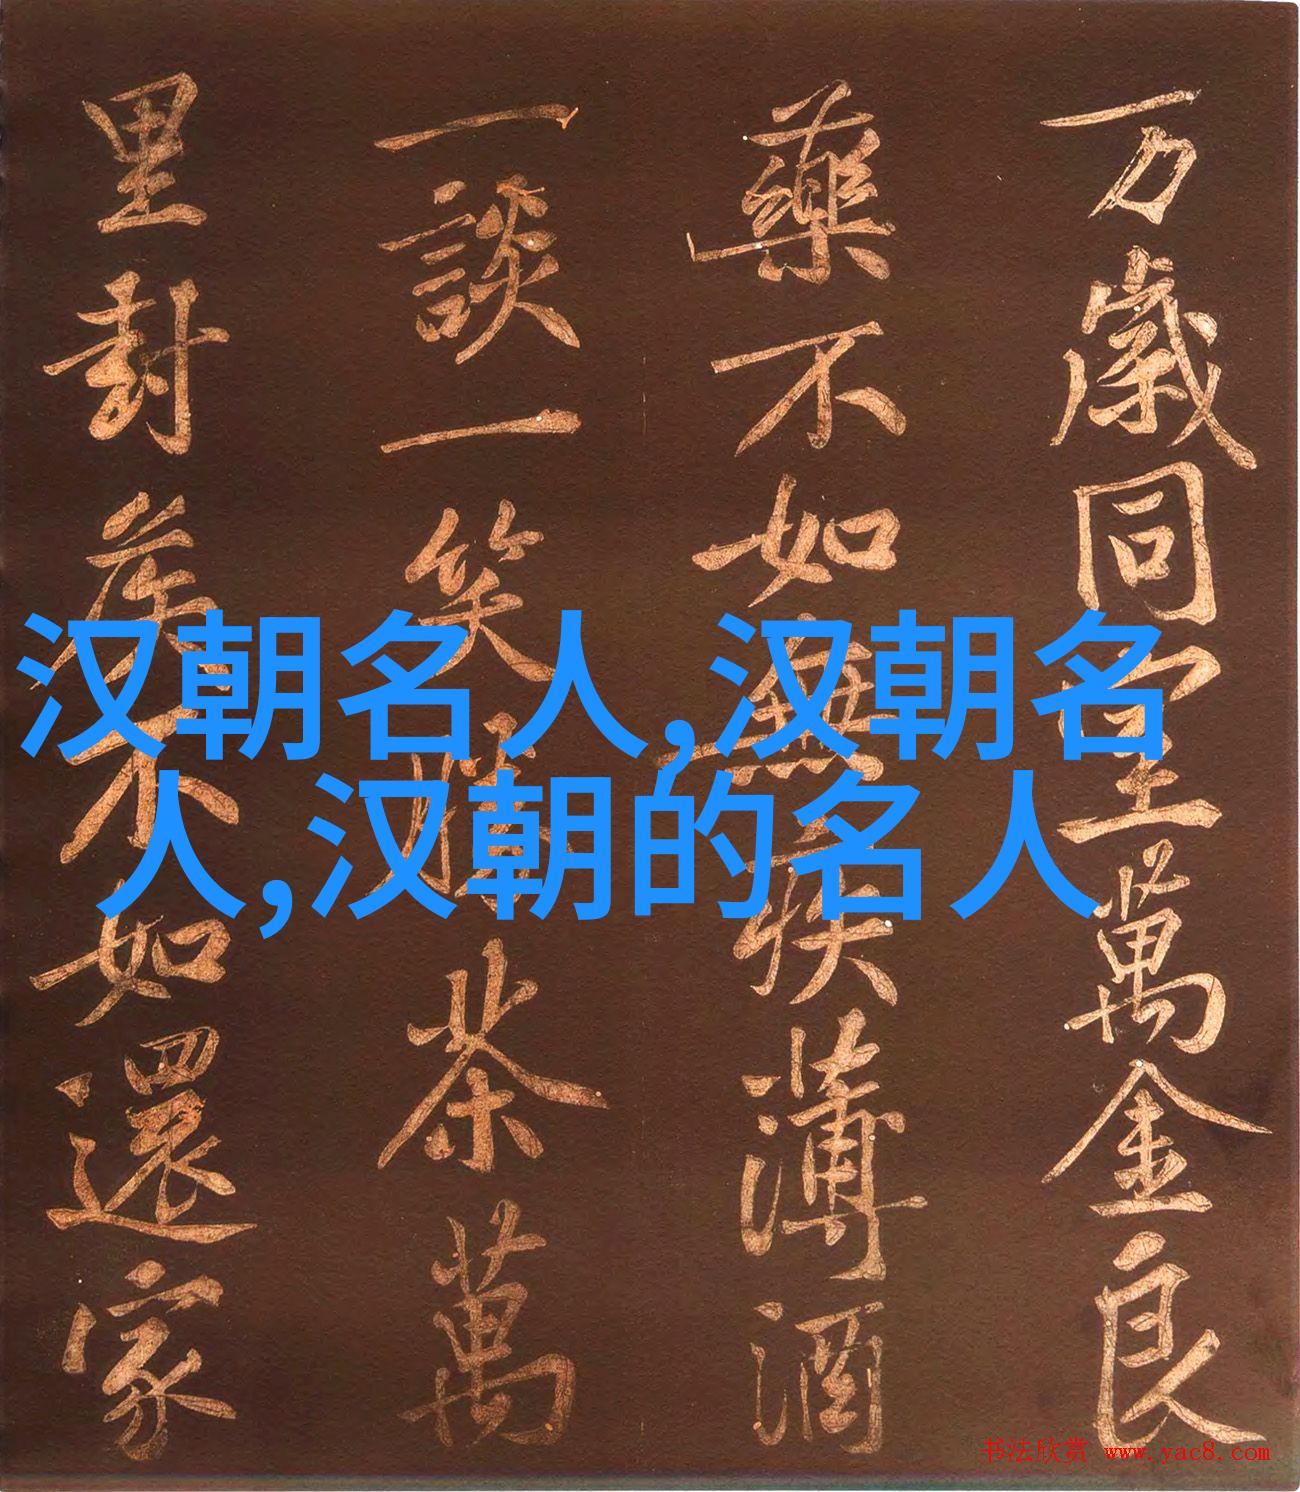 万歲同堂萬金良
藥不如無疾薄酒
一談一笑勝茶萬
里封侯不如還家
汉朝名人,汉朝名
人,汉朝的名人
书法欣赏 www.yac8.com